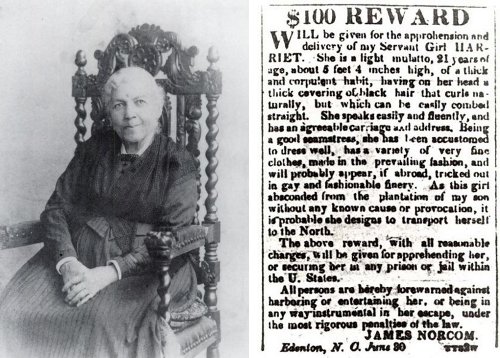 $100 REWARD
WILL be given for the apprehension and
delivery of my Servant Girl HAR-
RIET. She is a light mulatto, 21 years of
age, about 5 feet 4 inches high, of a thick
and corpulent habit, having on her head a
thick covering of black hair that curls na-
turally, but which can be easily combed
straight. She speaks easily and fluently, and
has an agreeable carriage and address. Being
a good seamstress, she has been accustomed
to dress well, has a variety of very fine
clothes, made in the prevailing fashion, and
will probably appear, if abroad, tricked out
in gay and fashionable finery. As this girl
absconded from the plantation of my son
without any known cause or provocation, it
is probable she designs to transport herself
to the North.
The above reward, with all reasonable
charges, will be given for apprehending her,
or securing her in any prison or jail within
the U. States.
All persons are hereby forewarned against
harboring or entertaining her, or being in
any way instrumental in her escape, under
the most rigorous penalties of the law.
JAMES NORCOM.
Edenton, N. C. June 30